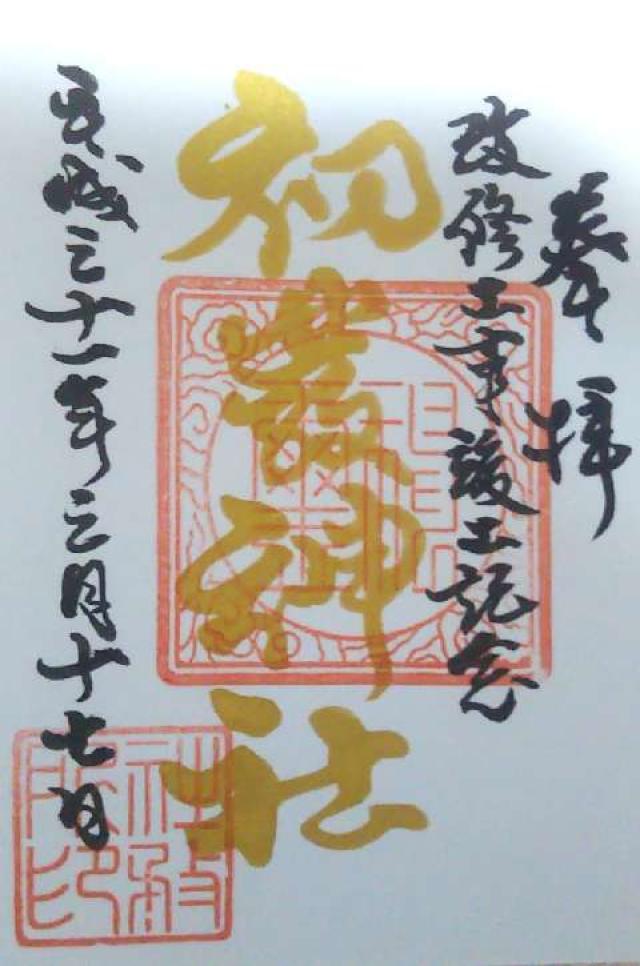 奉拝
改修工事竣工記念
初 神社
平成三十一年三月十七日
社務
所印